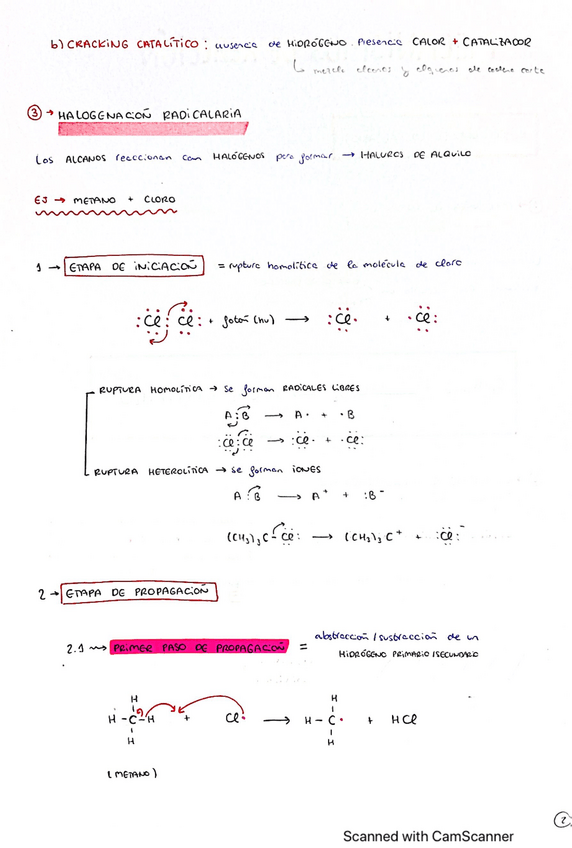 b) CRACKING CATALÍTICO : ausencia de HIDRÓGENO. Presencia CALOR + CATALIZADOR
↳ mezcla alcanos y alquenos de cadena corta
③ → HALOGENACIÓN RADICALARIA
Los ALCANOS reaccionan con HALÓGENOS para formar → HALUROS DE ALQUILO
EJ → METANO + CLORO
1 → ETAPA DE INICIACIÓN = ruptura homolítica de la molécula de cloro
:Cl : Cl: + fotón (hν) → :Cl· + ·Cl:
RUPTURA HOMOLÍTICA → se forman RADICALES LIBRES
A:B → A· + ·B
:Cl:Cl → :Cl· + ·Cl:
RUPTURA HETEROLÍTICA → se forman IONES
A:B → A⁺ + :B⁻
(CH₃)₃C-Cl: → (CH₃)₃C⁺ + :Cl:⁻
2 → ETAPA DE PROPAGACIÓN
2.1 ⇝ PRIMER PASO DE PROPAGACIÓN = abstracción/sustracción de un
HIDRÓGENO PRIMARIO/SECUNDARIO
H H
H-C-H + Cl· → H-C· + HCl
H H
(METANO)
2
Scanned with CamScanner